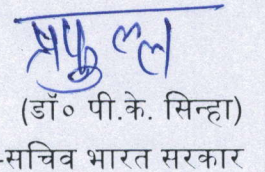 प्रफुल्ल
(डॉ० पी.के. सिन्हा)
-सचिव भारत सरकार